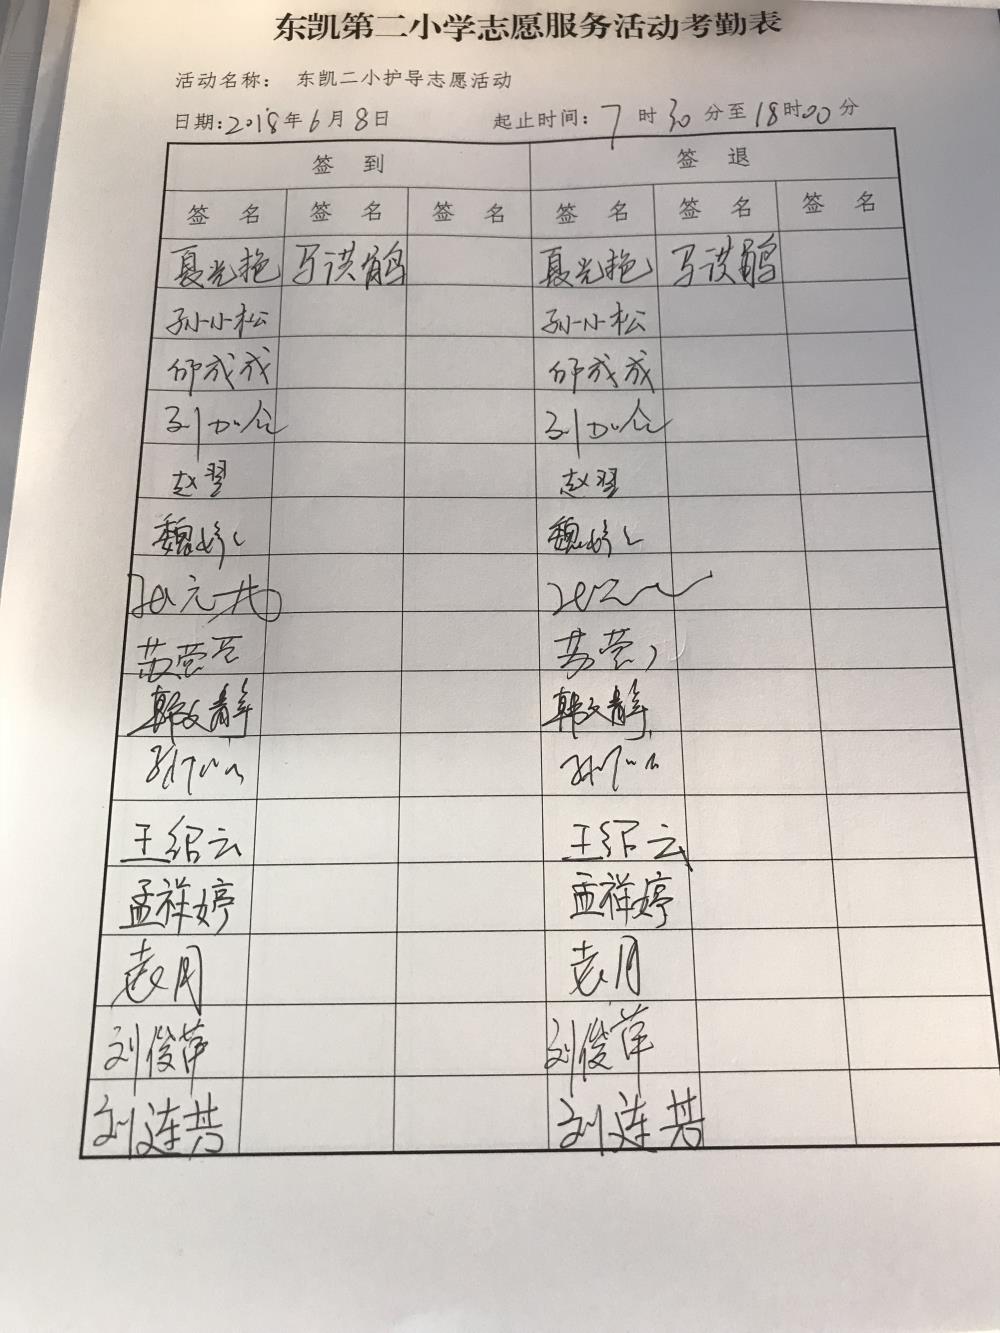 东凯第二小学志愿服务活动考勤表
活动名称： 东凯二小护导志愿活动
日期：2018年6月8日 起止时间：7时30分至18时00分
签 到 签 退
签 名 签 名 签 名 签 名 签 名 签 名
夏光艳 马洪鹃 夏光艳 马洪鹃
孙小松 孙小松
邰成成 邰成成
赵翌 赵翌
魏婷 魏婷
韩文静 韩文静
王绍云 王绍云
孟祥婷 孟祥婷
袁月 袁月
刘俊萍 刘俊萍
刘连芸 刘连芸